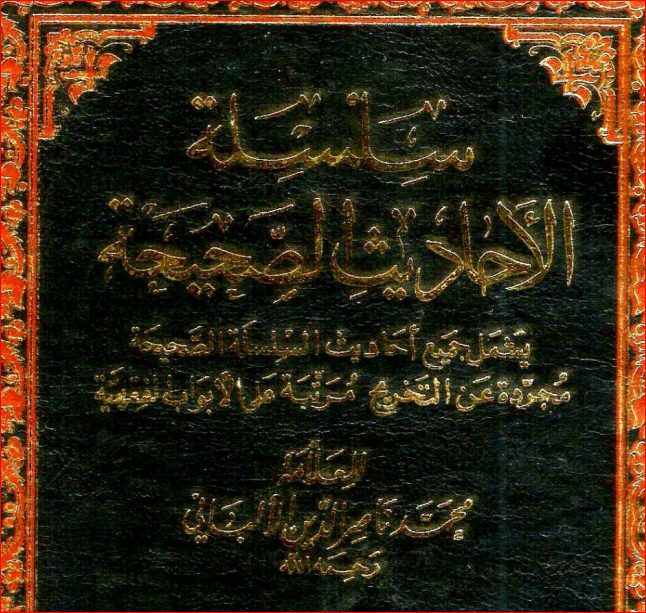 سِلْسِلَة
الأَحَادِيثِ الصَّحِيحَة
يَشْمَل جَمِيع أحَاديث السِّلْسِلَة الصَّحِيحَة
مُجَرَّدة عَن التَّخْرِيج مُرَتَّبَة عَلى الأَبوَاب الفِقهِيَّة
للعَلَّامَة
مُحَمَّد نَاصِر الدِّين الأَلبَاني
رَحِمَه الله